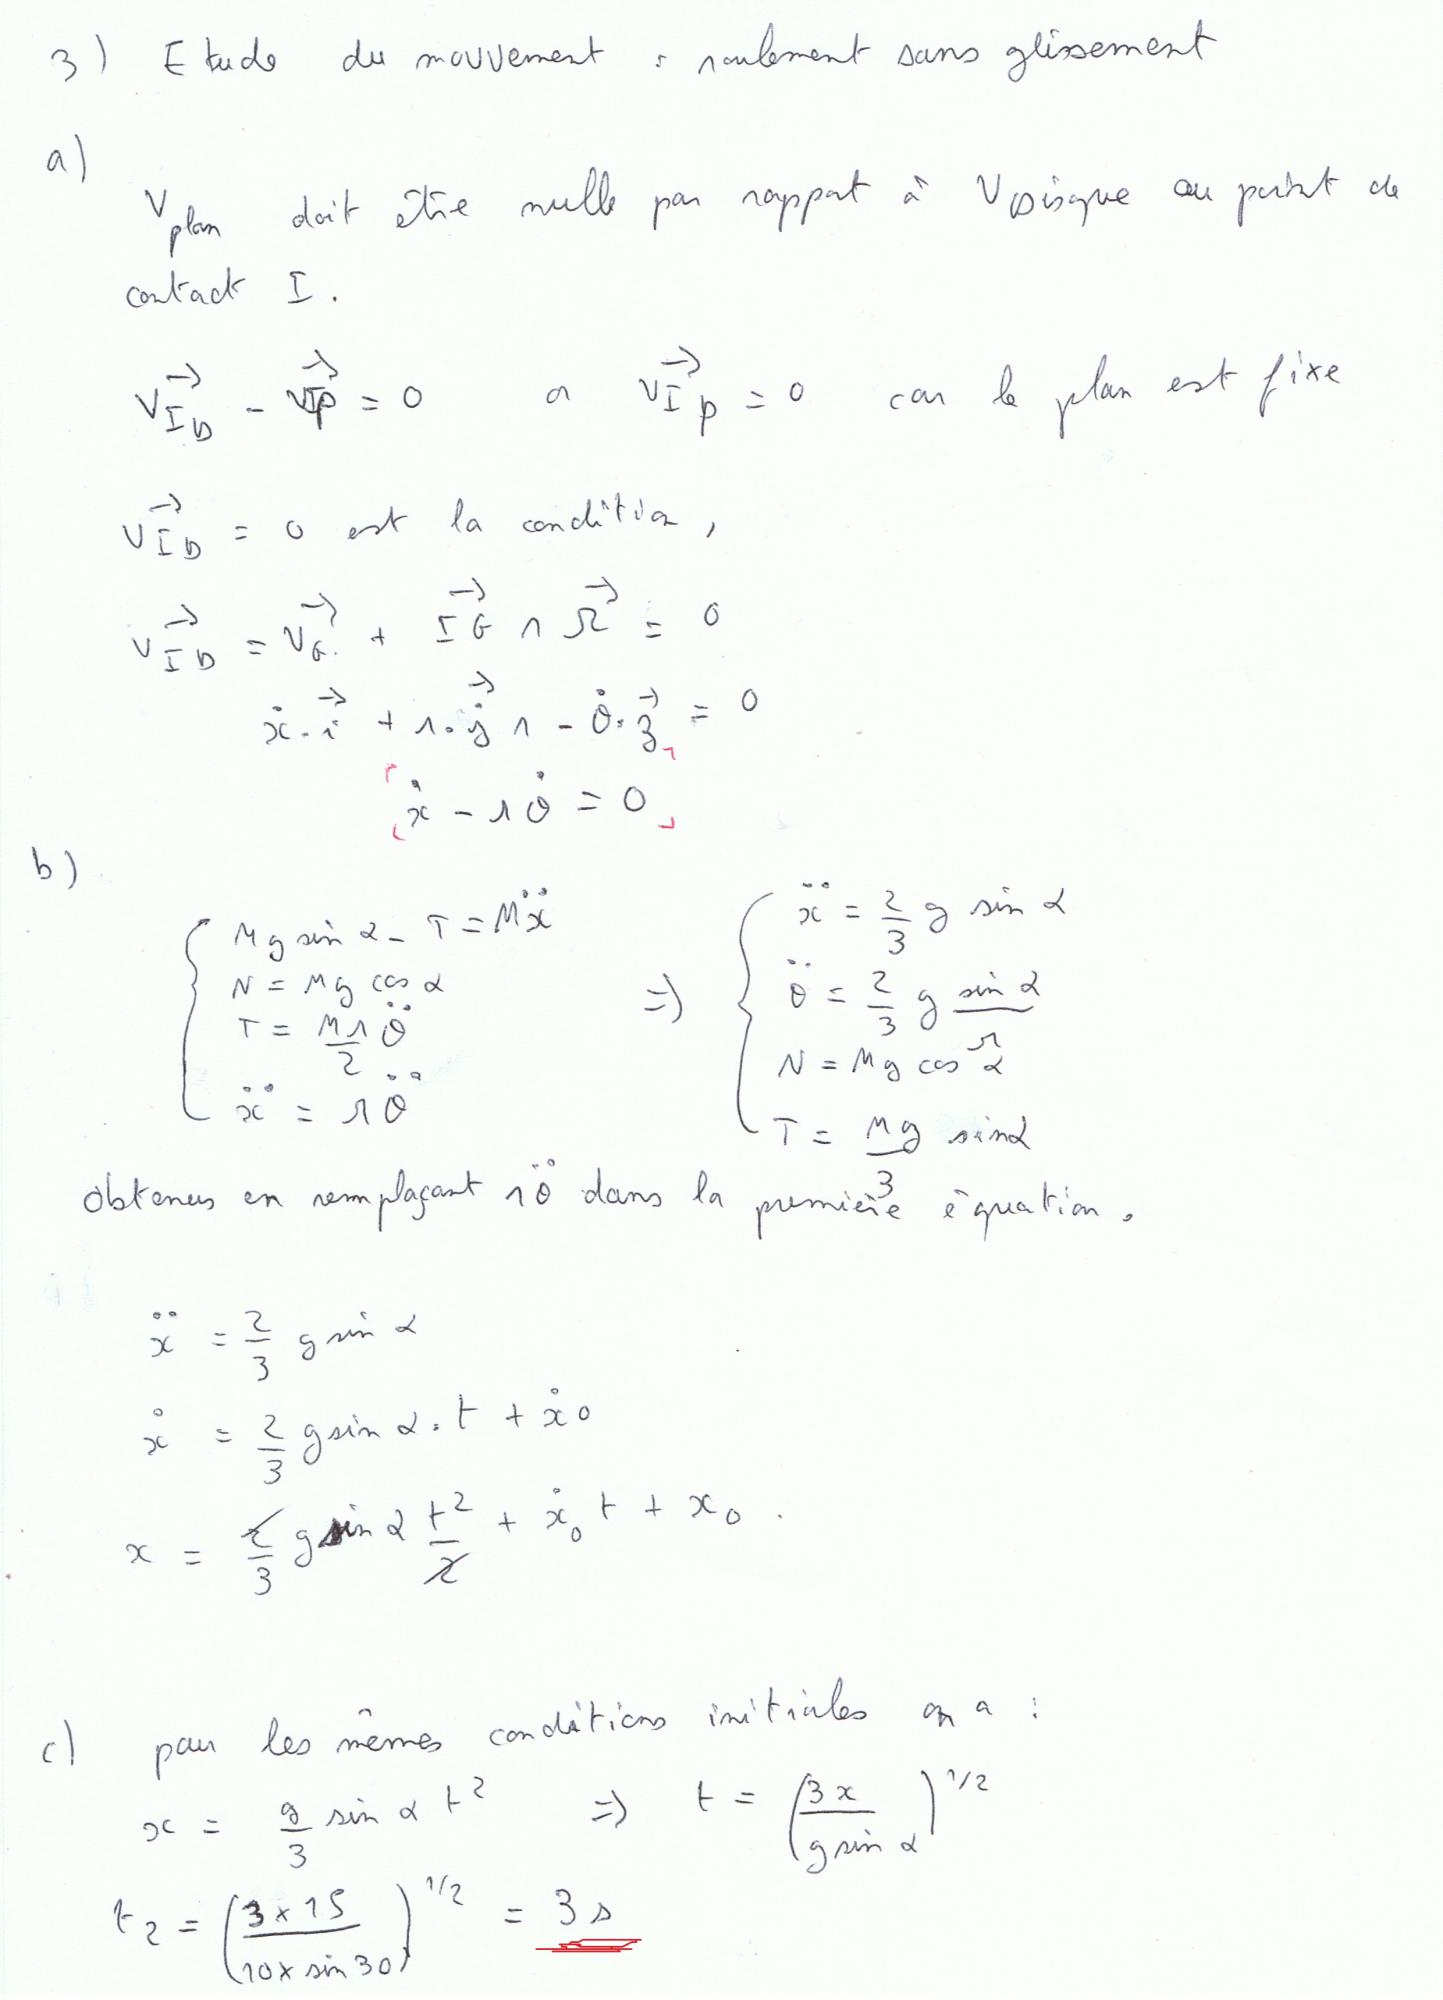 3) Etude du mouvement : roulement sans glissement
a)
V plan doit être nulle par rapport à V Disque au point de
contact I.
V⃗_ID - V⃗_IP = 0 or V⃗_IP = 0 car le plan est fixe
V⃗_ID = 0 est la condition,
V⃗_ID = V⃗_G. + I⃗G ∧ Ω⃗ = 0
ẋ.i⃗ + r.j⃗ ∧ - θ̇.z⃗ = 0
ẋ - rθ̇ = 0
b)
{ Mg sin α - T = Mẍ
N = Mg cos α
T = Mr/2 θ̈
ẍ = rθ̈
=> { ẍ = 2/3 g sin α
θ̈ = 2/3 g sin α/r
N = Mg cos α
T = Mg/3 sin α
obtenus en remplaçant rθ̈ dans la première équation.
ẍ = 2/3 g sin α
ẋ = 2/3 g sin α . t + ẋ0
x = 2/3 g sin α t²/2 + ẋ0 t + x0 .
c) pour les mêmes conditions initiales on a :
x = g/3 sin α t² => t = (3x/g sin α)^1/2
t2 = (3 x 15/10 x sin 30)^1/2 = 3 s